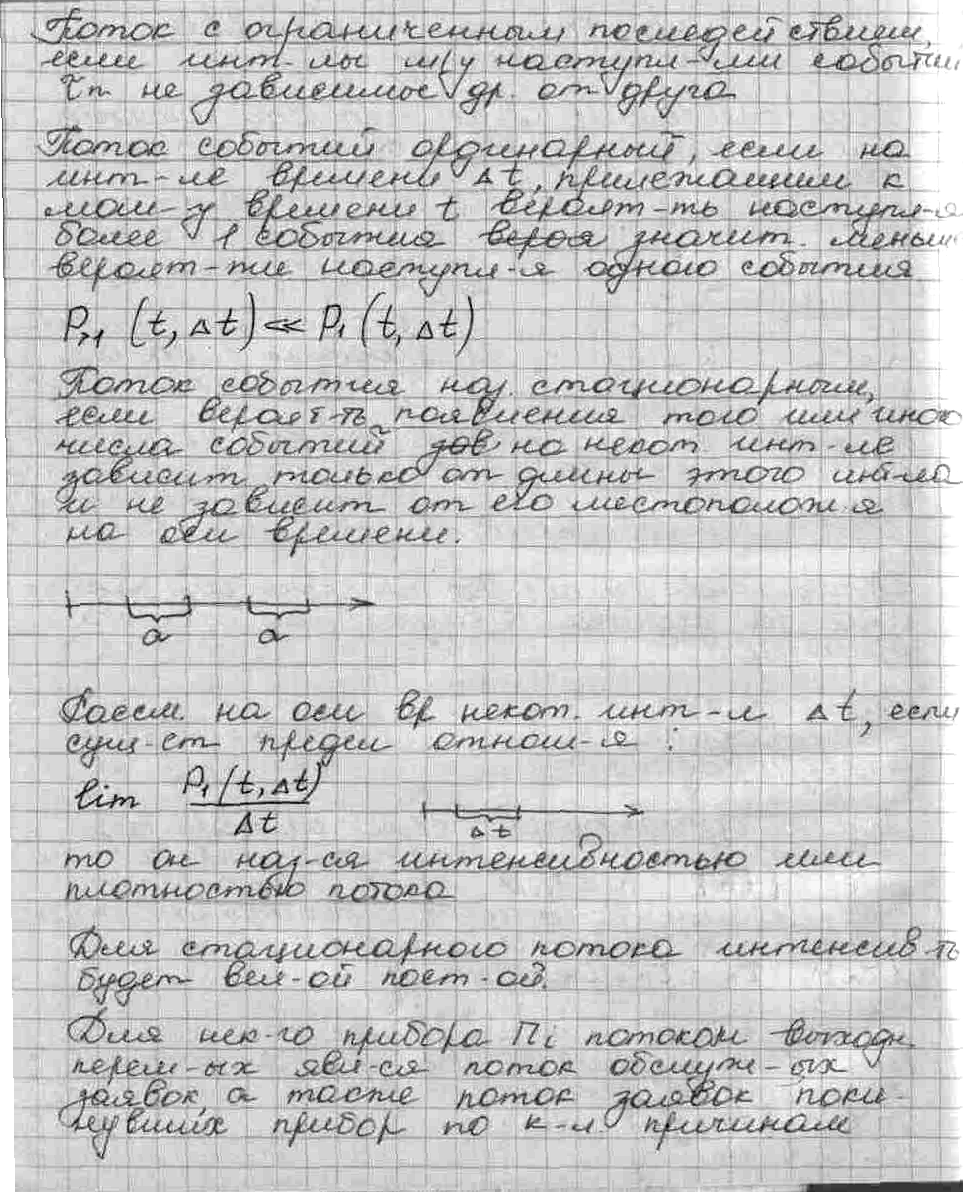 Поток с ограниченным последействием,
если инт-лы м/у наступл-ми событий
τn не зависимые др. от друга
Поток событий ординарный, если на
инт-ле времени Δt, прилежащим к
мом-у времени t вероят-ть наступл-я
более 1 события вероя значит. меньше
вероят-ти наступл-я одного события
P>1 (t, Δt) ≪ P1 (t, Δt)
Поток события наз. стационарным,
если вероят-ть появления того или иного
числа событий зав на некот. инт-ле
зависит только от длины этого инт-ла
и не зависит от его местополож-я
на оси времени.
a a
Рассм. на оси вр некот. инт-л Δt, если
сущ-ст предел отнош-я :
lim P1 (t, Δt)
Δt
Δt
то он наз-ся интенсивностью или
плотностью потока
Для стационарного потока интенсив-ть
будет вел-ой пост-ой.
Для нек-го прибора Пi потоком выходн.
перем-ых явл-ся поток обслуж-ых
заявок, а также поток заявок поки-
нувших прибор по к-л причинам